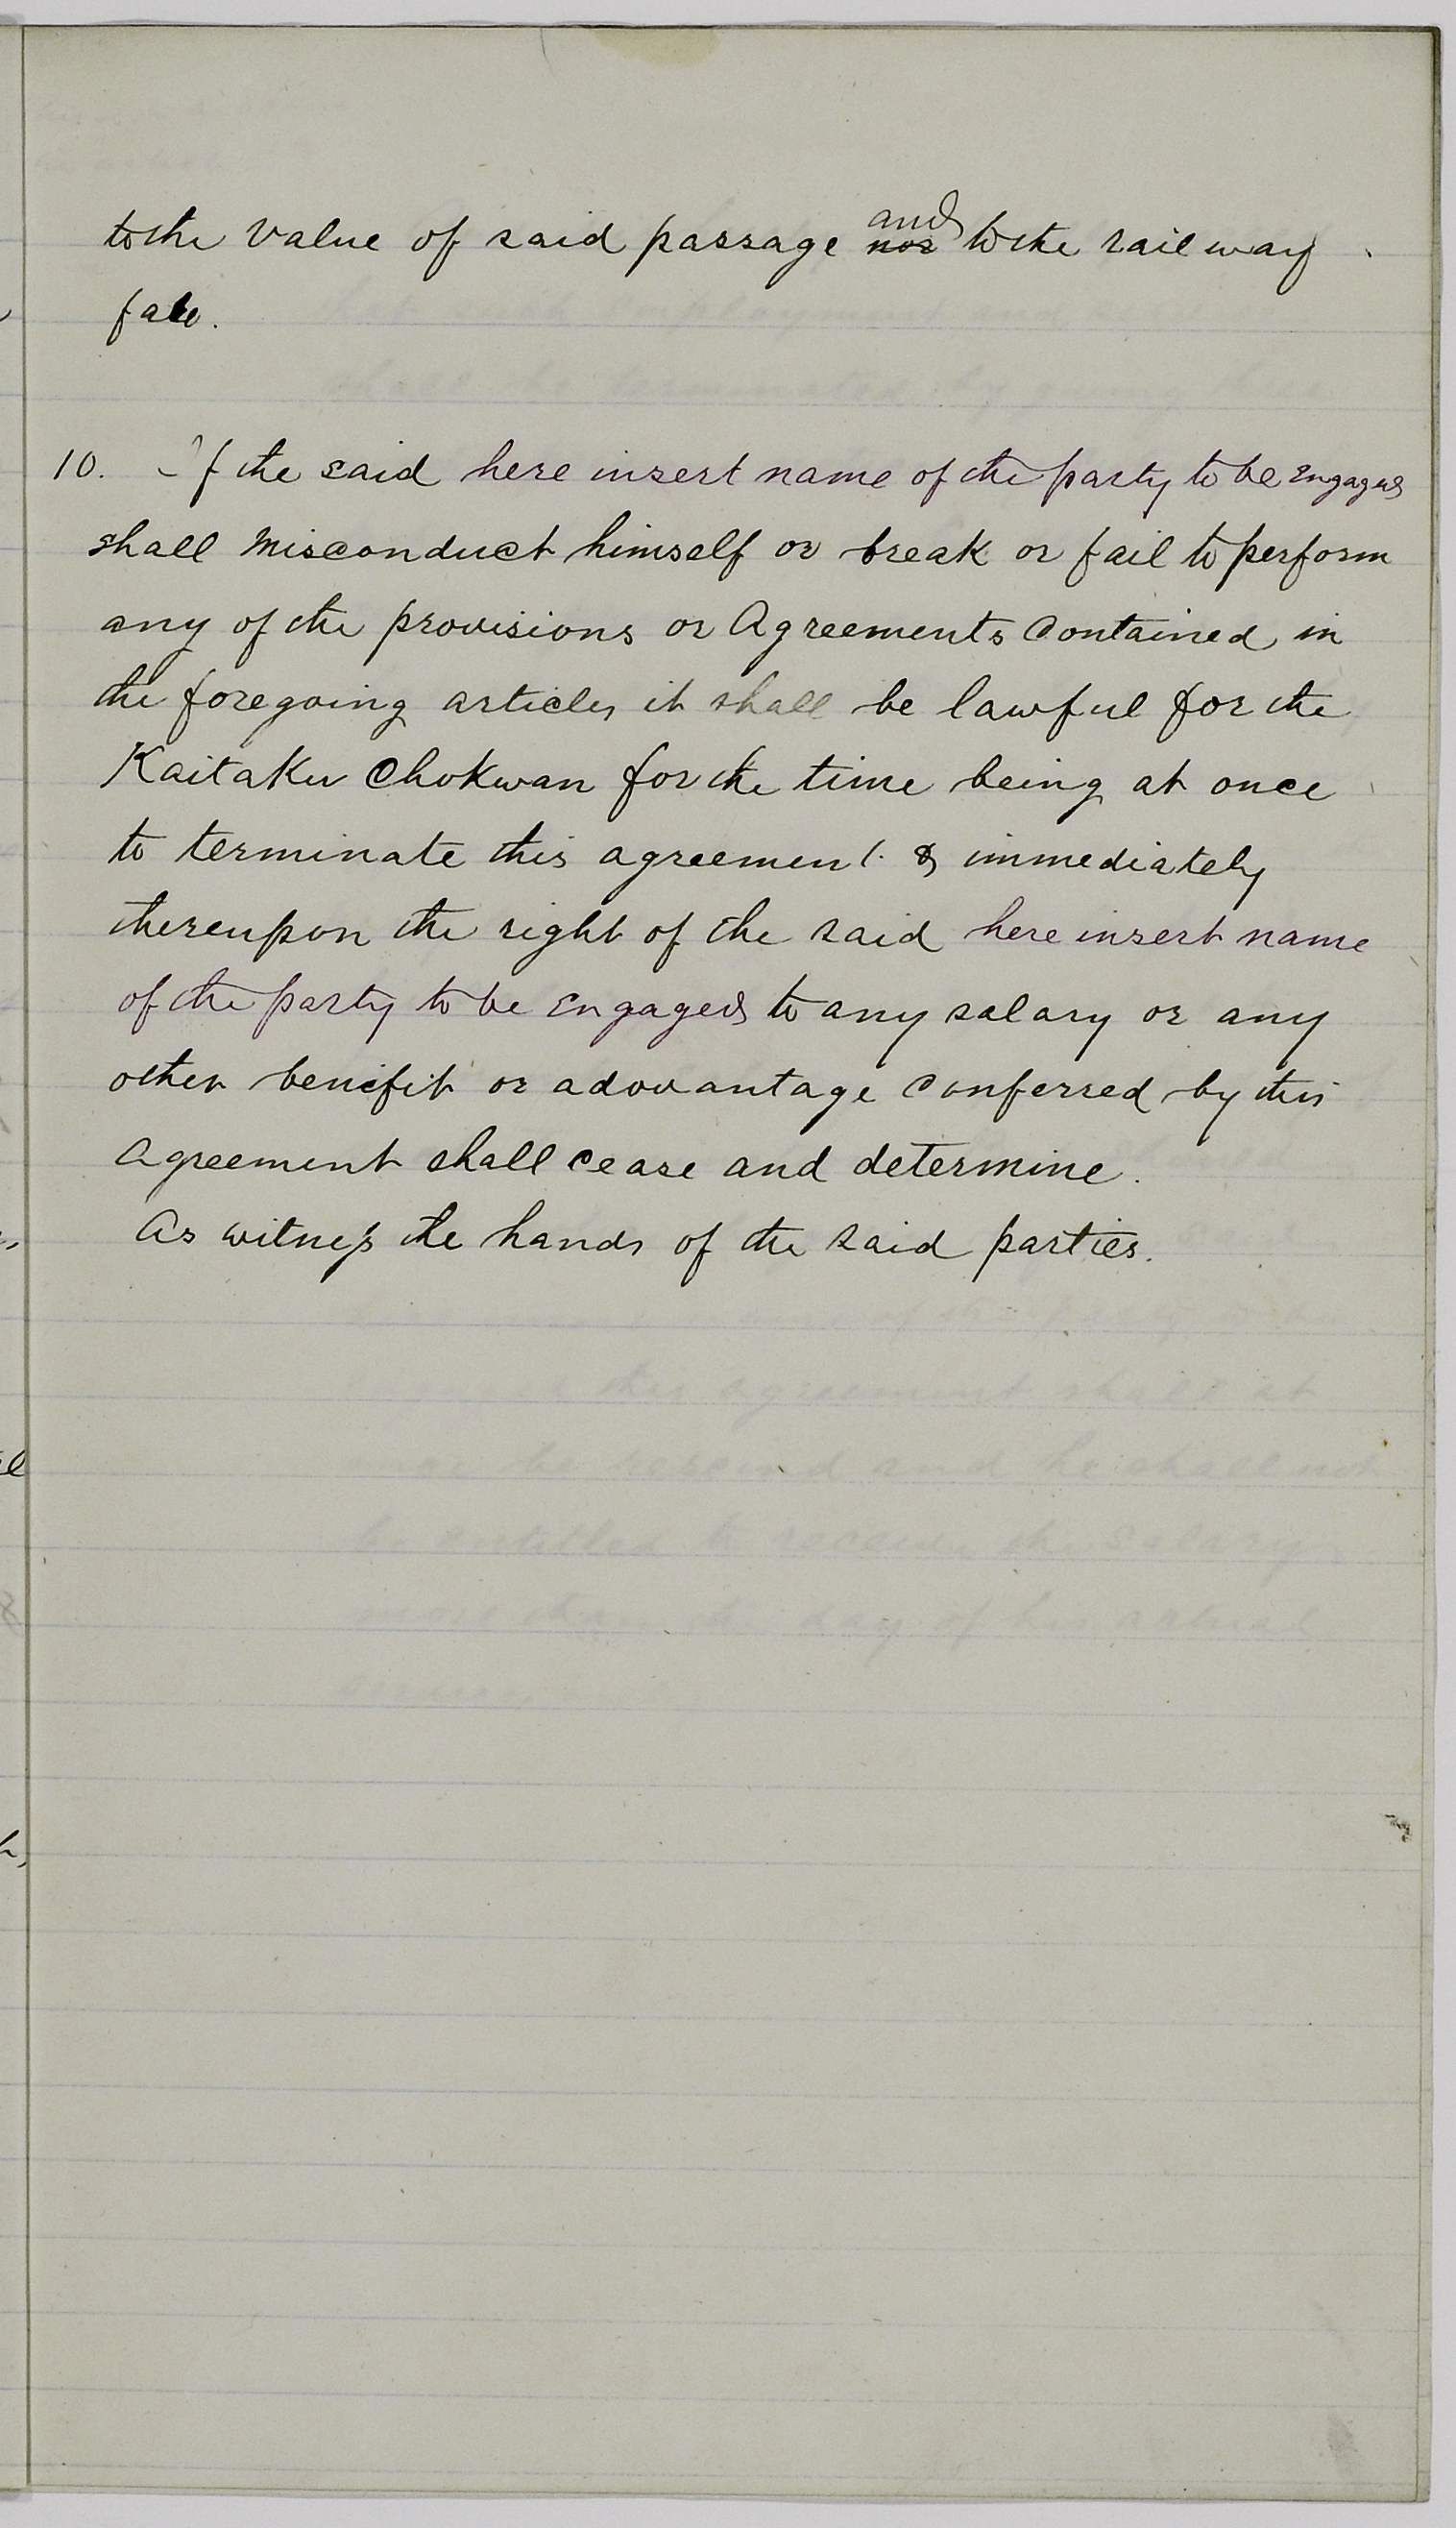 to the value of said passage and nor to the railway
fare.
10. If the said here insert name of the party to be Engaged
shall misconduct himself or break or fail to perform
any of the provisions or Agreements Contained in
the foregoing articles it shall be lawful for the
Kaitaku Chokwan for the time being at once
to terminate this agreement & immediately
thereupon the right of the said here insert name
of the party to be Engaged to any salary or any
other benefit or adovantage Conferred by this
Agreement shall cease and determine.
As witness the hands of the said parties.